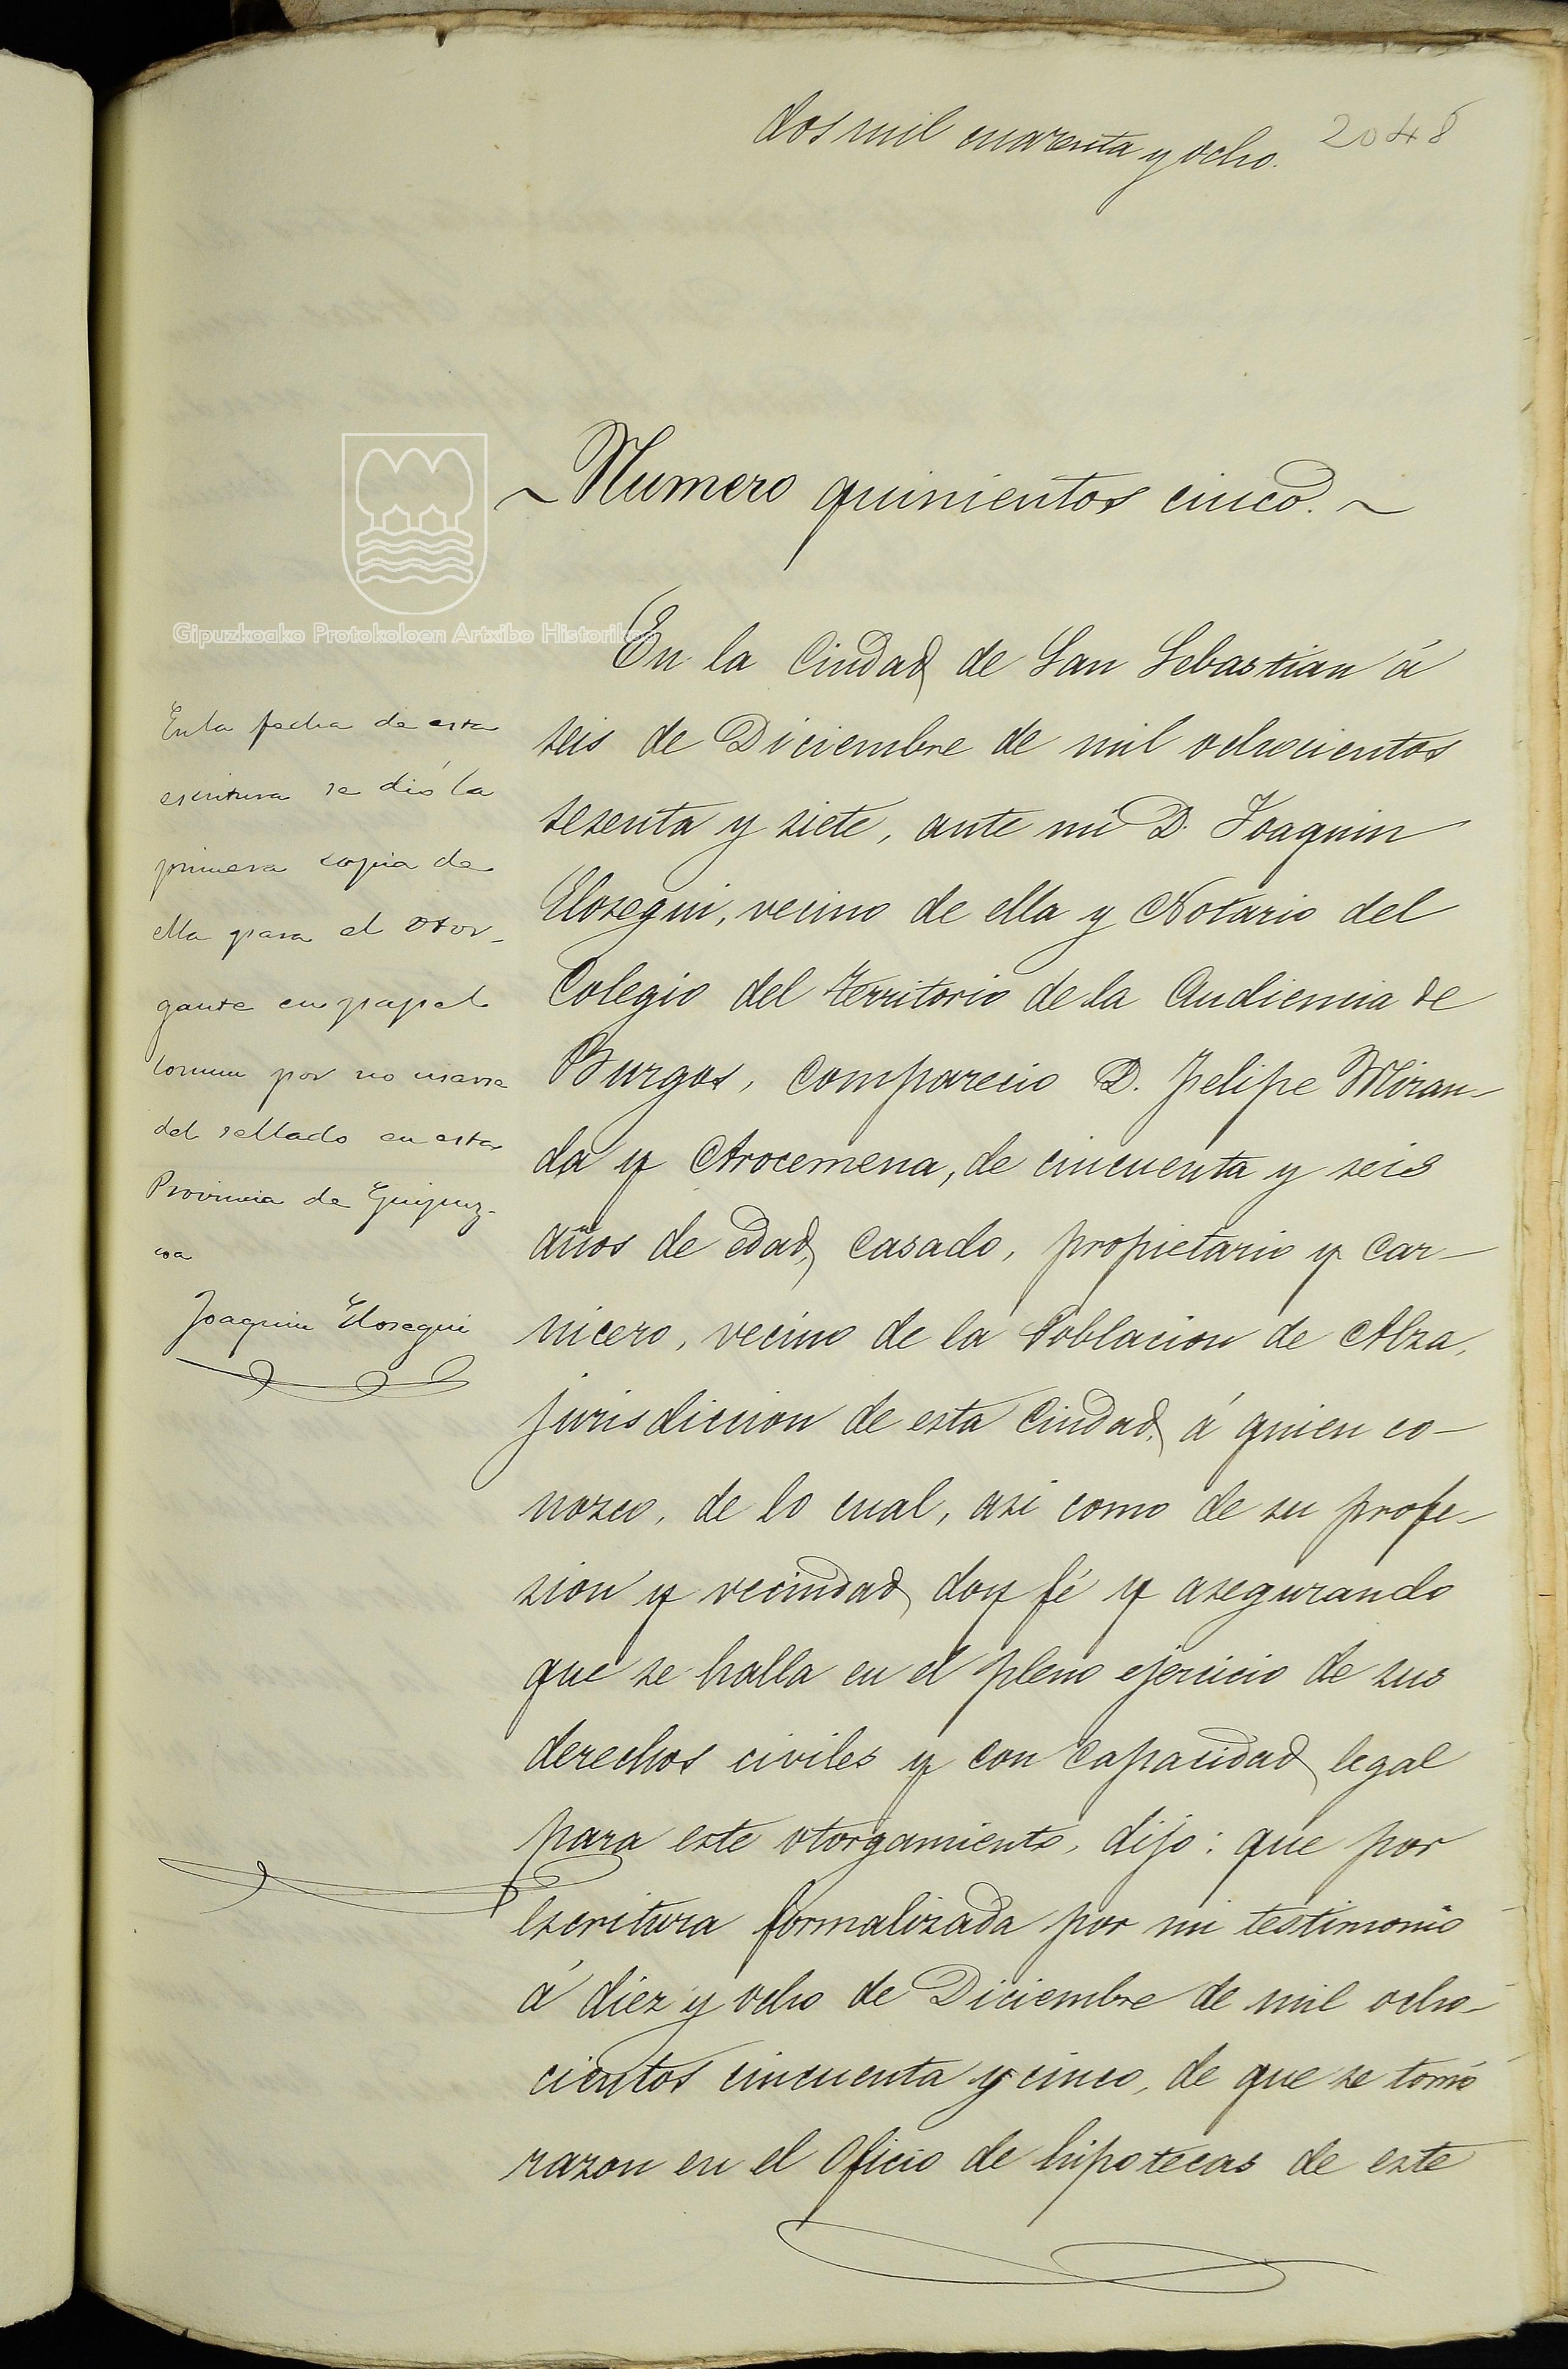 dos mil cuarenta y ocho. 2048
~ Numero quinientos cinco. ~
Gipuzkoako Protokoloen Artxibo Historikoa
En la Ciudad de San Sebastian á
seis de Diciembre de mil ochocientos
sesenta y siete, ante mi D. Joaquin
Elosegui, vecino de ella y Notario del
Colegio del territorio de la Audiencia de
Burgos, comparecio D. Felipe Miran-
da y Arocemena, de cincuenta y seis
años de edad, casado, propietario y car-
nicero, vecino de la Poblacion de Alza,
jurisdiccion de esta Ciudad, á quien co-
nozco, de lo cual, asi como de su profe-
sion y vecindad doy fé y asegurando
que se halla en el pleno ejercicio de sus
derechos civiles y con capacidad legal
para este otorgamiento, dijo: que por
escritura formalizada por mi testimonio
á diez y ocho de Diciembre de mil ocho-
cientos cincuenta y cinco, de que se tomó
razon en el Oficio de hipotecas de este
En la fecha de esta
escritura se dió la
primera copia de
ella para el otor-
gante en papel
comun por no usarse
del sellado en esta
Provincia de Guipuz-
coa
Joaquin Elosegui